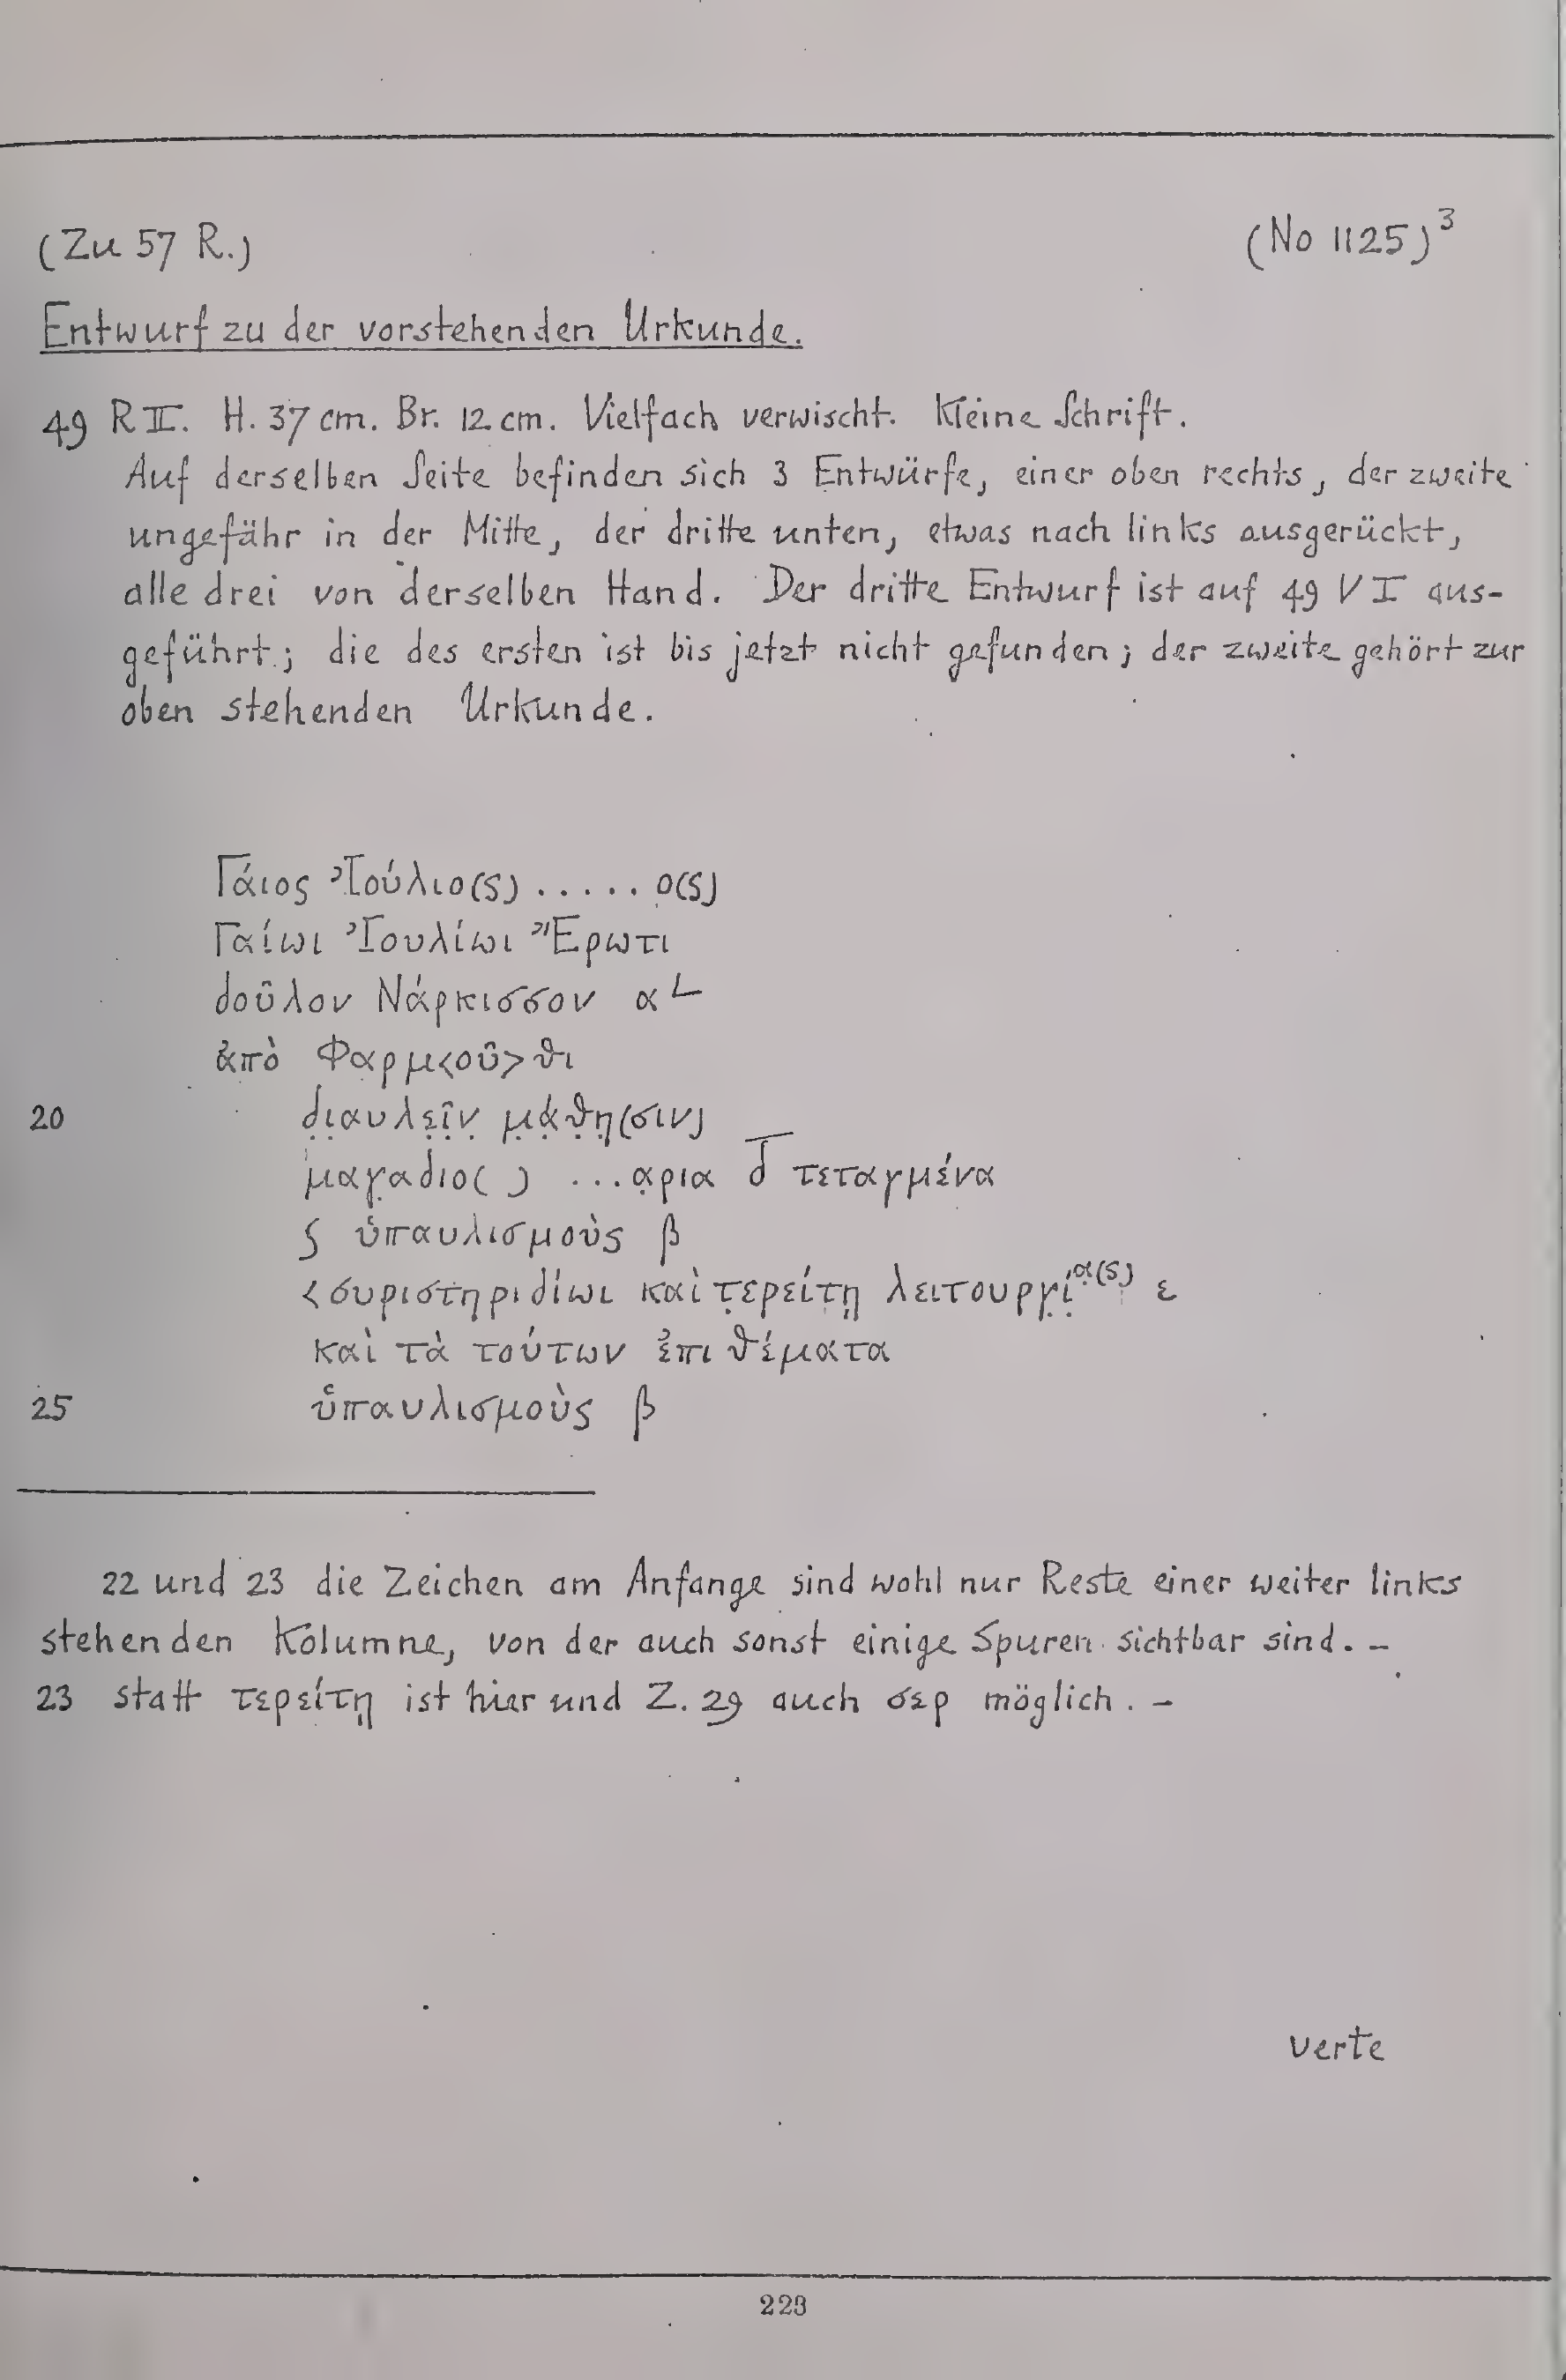 (Zu 57 R.) (No 1125)³
Entwurf zu der vorstehenden Urkunde.
49 R II. H. 37 cm. Br. 12 cm. Vielfach verwischt. Kleine Schrift.
Auf derselben Seite befinden sich 3 Entwürfe, einer oben rechts, der zweite
ungefähr in der Mitte, der dritte unten, etwas nach links ausgerückt,
alle drei von derselben Hand. Der dritte Entwurf ist auf 49 V I aus-
geführt; die des ersten ist bis jetzt nicht gefunden; der zweite gehört zur
oben stehenden Urkunde.
Γάιος Ἰούλιο(ς) . . . . . ο(ς)
Γαίωι Ἰουλίωι Ἔρωτι
δοῦλον Νάρκισσον α L
ἀπὸ Φαρμ<οῦ>θι
20 δ̣ι̣αυλε̣ῖ̣ν̣ μ̣ά̣θ̣η̣(σιν)
μαγ̣αδιο( ) ...α̣ρια δ̅ τεταγμένα
ς ὑπαυλισμοὺς β
< συριστηριδίωι καὶ τ̣ερείτῃ λειτουργ̣ί̣α̣(ς) ε
καὶ τὰ τούτων ἐπιθέματα
25 ὑπαυλισμοὺς β
22 und 23 die Zeichen am Anfange sind wohl nur Reste einer weiter links
stehenden Kolumne, von der auch sonst einige Spuren sichtbar sind. –
23 statt τερείτῃ ist hier und Z. 29 auch σερ möglich. –
verte
223